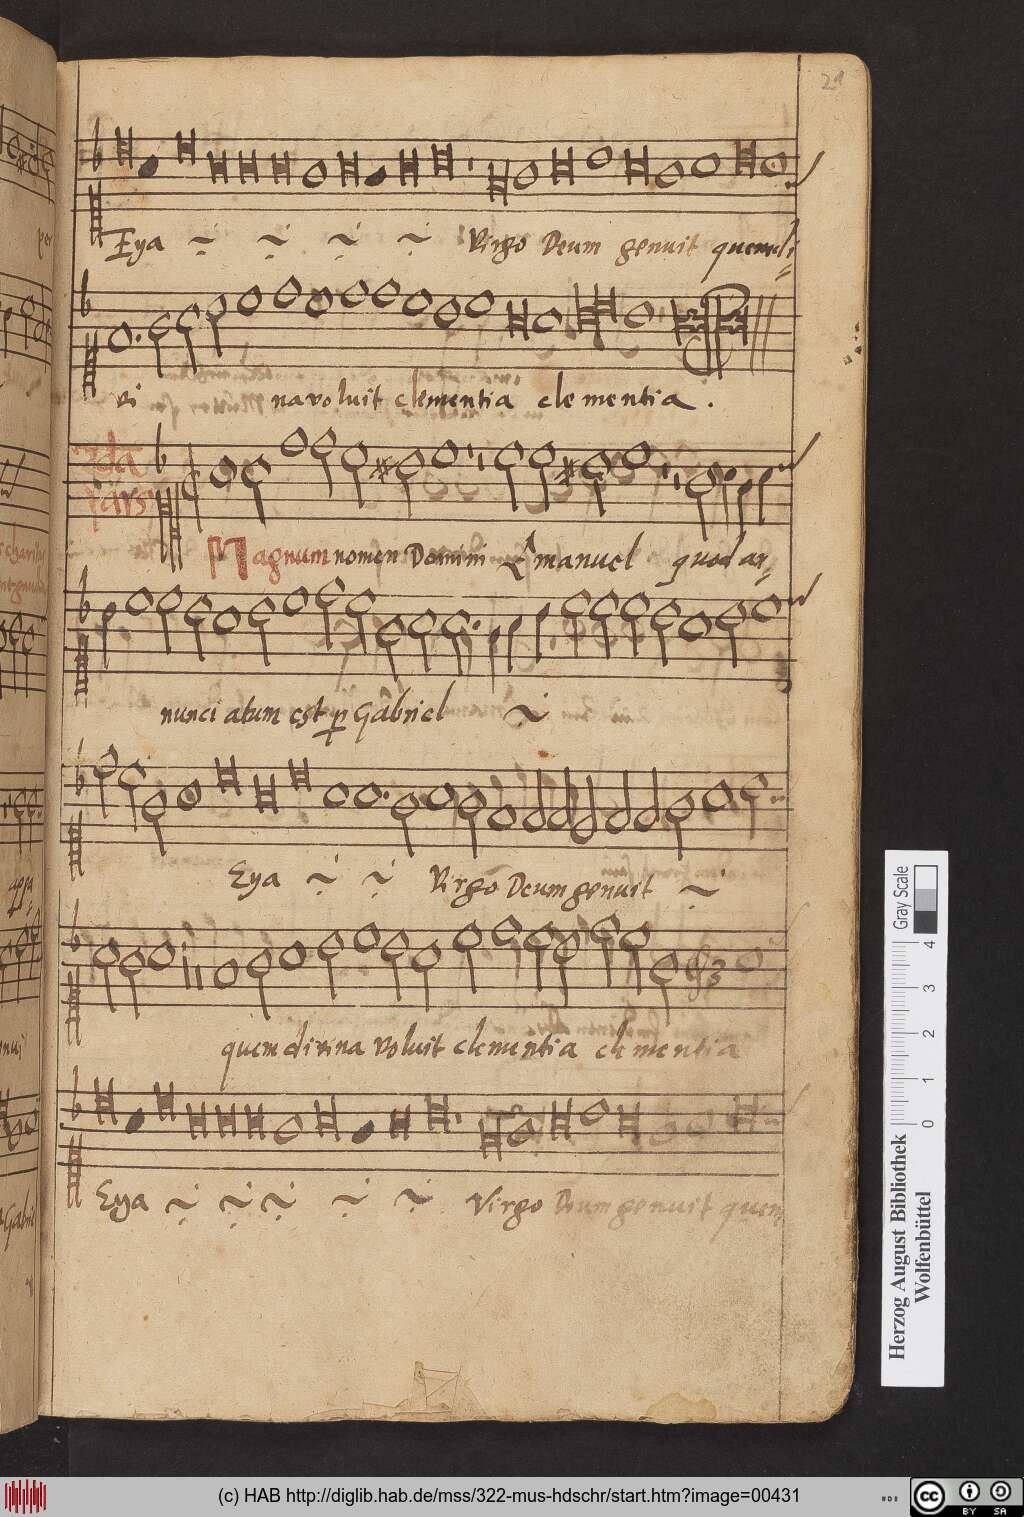 21
Eya Virgo Deum genuit quem di-
vi na voluit clementia cle mentia .
2da
pars
Magnum nomen Domini Emanuel quod an-
nunci atum est p Gabriel
Eya Virgo Deum genuit
quem divina voluit clementia cle mentia
Eya Virgo Deum genuit quem
Gray Scale
0 1 2 3 4
Herzog August Bibliothek
Wolfenbüttel
(c) HAB http://diglib.hab.de/mss/322-mus-hdschr/start.htm?image=00431
cc BY SA